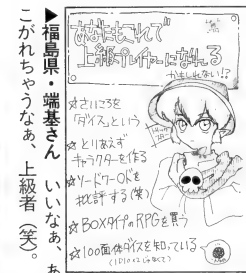 あなたもこれで
上級プレイヤーになれる
かもしれない!?
☆さいころを
「ダイス」という
☆とりあえず
キャラクターを作る
☆ソードワールドを
批評する(笑)
☆BOXタイプのRPGを買う
☆100面体ダイスを知っている
(1D10×2じゃなくて)
▶福島県・端基さん　いいなぁ、あ
こがれちゃうなぁ、上級者(笑)。